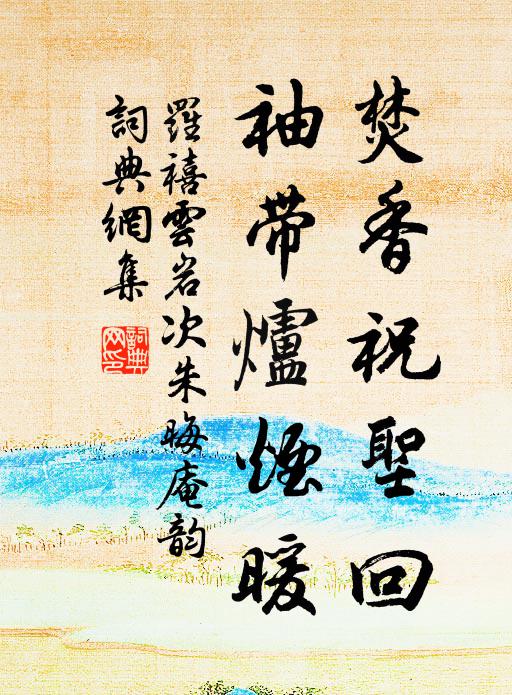 焚香祝聖回
袖帶爐煙暖
羅禧雲岩次朱晦庵韵
詞典網集
詞典網印